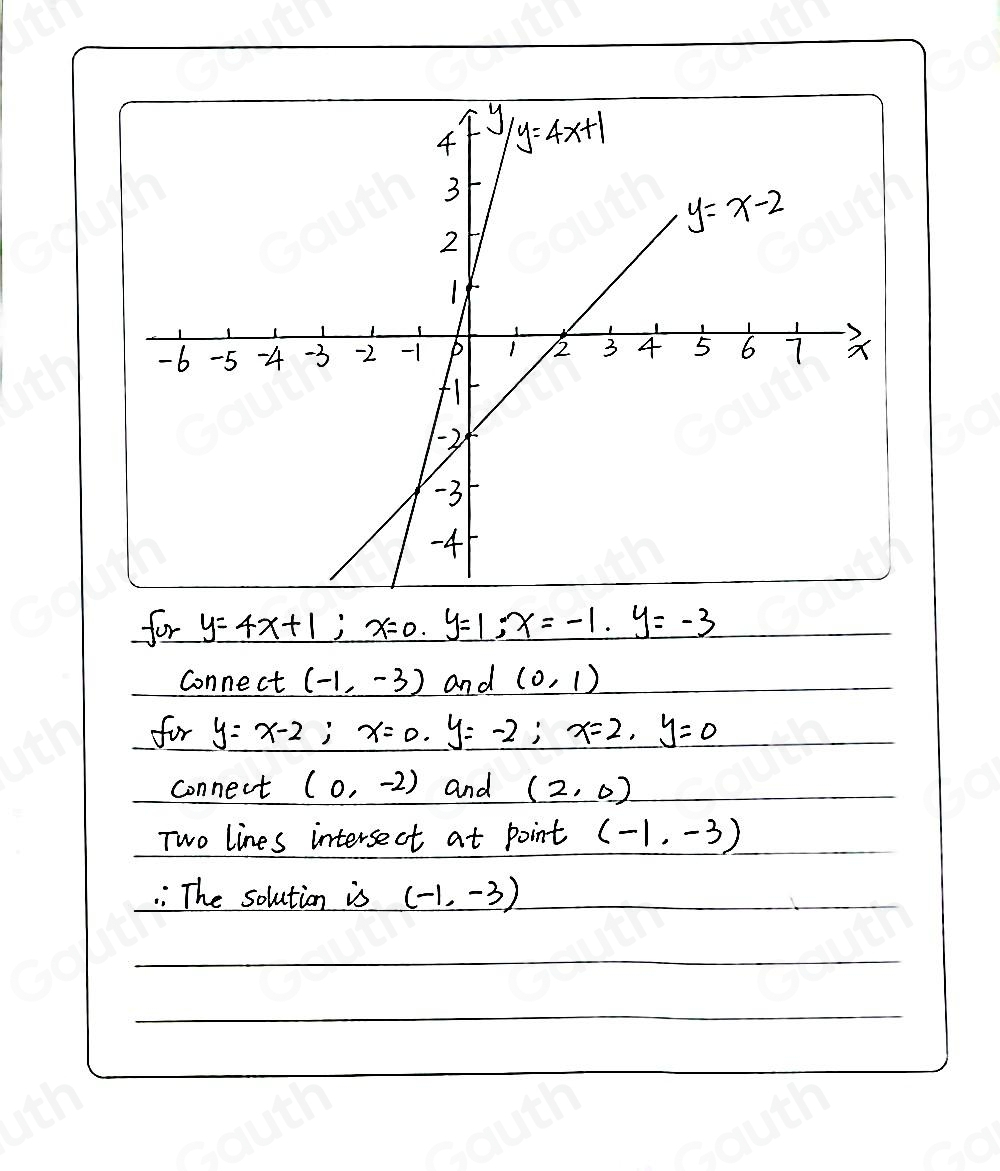 y
y=4x+1
4
3
y=x-2
2
1
-6 -5 -4 -3 -2 -1 0 1 2 3 4 5 6 7 x
-1
-2
-3
-4
for y=4x+1 ; x=0. y=1 ; x=-1. y=-3
Connect (-1, -3) and (0, 1)
for y=x-2 ; x=0. y=-2 ; x=2. y=0
connect (0, -2) and (2, 0)
Two lines intersect at point (-1, -3)
∴ The solution is (-1, -3)
Gauth